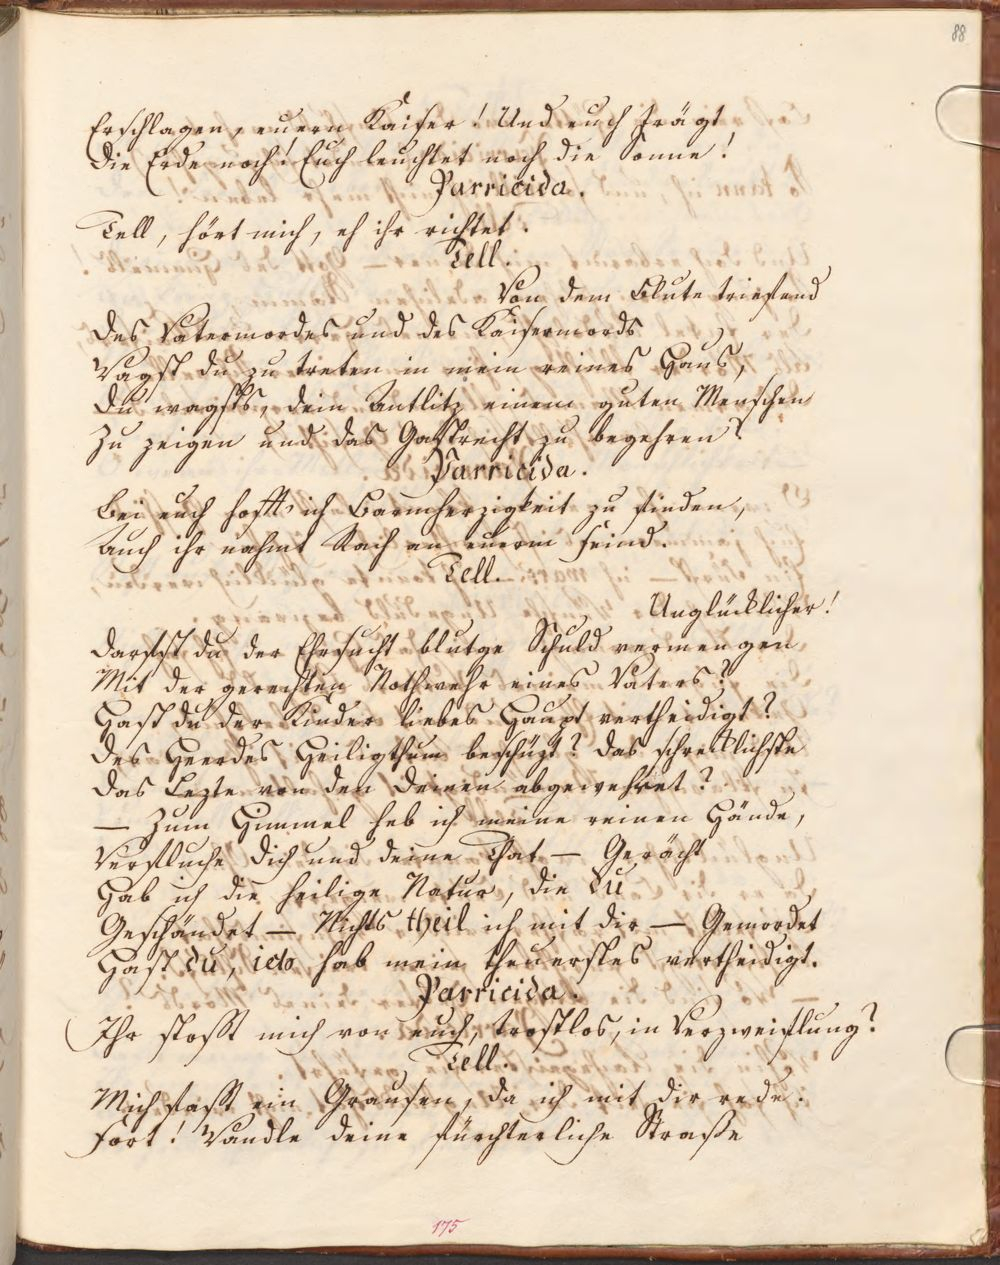 88
Erschlagen, euern Kaiser! Und euch trägt
Die Erde noch! Euch leuchtet noch die Sonne!
Parricida.
Tell, hört mich, eh ihr richtet.
Tell.
Von dem Blute triefend
Des Vatermordes und des Kaisermords
Wagst du zu treten in mein reines Haus,
Du wagsts, dein Antlitz einem guten Menschen
Zu zeigen und das Gastrecht zu begehren?
Parricida.
Bei euch hofft' ich Barmherzigkeit zu finden,
Auch ihr nahmt Rach an euerm Feind.
Tell.
Unglücklicher!
Darfst du der Ehrsucht blutge Schuld vermengen
Mit der gerechten Nothwehr eines Vaters?
Hast du der Kinder liebes Haupt vertheidigt?
Des Heerdes Heiligthum beschüzt? das schrecklichste
Das Lezte von den Deinen abgewehret?
— Zum Himmel heb ich meine reinen Hände,
Verfluche dich und deine That — Gerächt
Hab ich die heilige Natur, die du
Geschändet — Nichts theil ich mit dir — Gemordet
Hast du, ich hab mein theuerstes vertheidigt.
Parricida.
Ihr stosst mich von euch, trostlos, in Verzweiflung?
Tell.
Mich fasst ein Grausen, da ich mit dir rede.
Fort! Wandle deine fürchterliche Straße
175